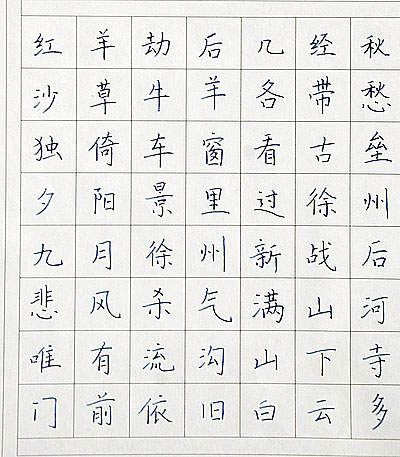 红羊劫后几经秋
沙草牛羊各带愁
独倚车窗看古垒
夕阳景里过徐州
九月徐州新战后
悲风杀气满山河
唯有流沟山下寺
门前依旧白云多